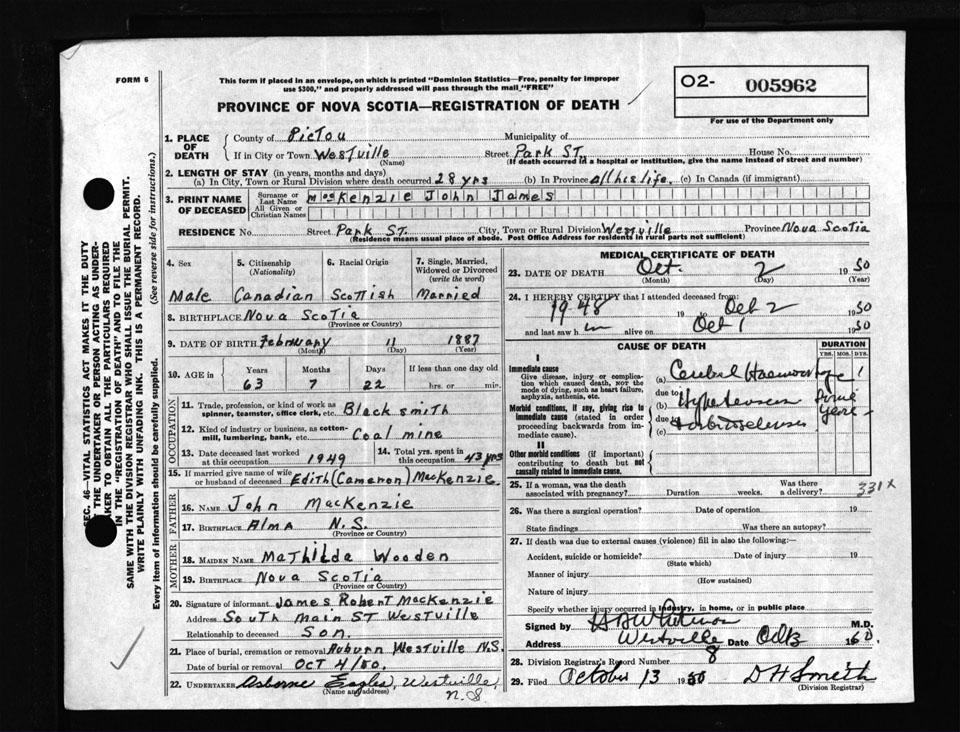 FORM 6
This form if placed in an envelope, on which is printed "Dominion Statistics—Free, penalty for improper
use $300," and properly addressed will pass through the mail "FREE"
PROVINCE OF NOVA SCOTIA—REGISTRATION OF DEATH
O2- 005962
For use of the Department only
1. PLACE OF DEATH
County of Pictou Municipality of
If in City or Town Westville Street Park ST. House No.
(Name) (If death occurred in a hospital or institution, give the name instead of street and number)
2. LENGTH OF STAY (in years, months and days)
(a) In City, Town or Rural Division where death occurred 28 yrs (b) In Province all his life. (c) In Canada (if immigrant)
3. PRINT NAME OF DECEASED
Surname or Last Name MacKenzie John James
All Given or Christian Names
RESIDENCE No. Street Park ST. City, Town or Rural Division Westville Province Nova Scotia
(Residence means usual place of abode. Post Office Address for residents in rural parts not sufficient)
4. Sex 5. Citizenship (Nationality) 6. Racial Origin 7. Single, Married, Widowed or Divorced (write the word)
Male Canadian Scottish Married
8. BIRTHPLACE Nova Scotia
(Province or Country)
9. DATE OF BIRTH February 11 1887
(Month) (Day) (Year)
10. AGE in Years Months Days If less than one day old
63 7 22 hrs. or min.
OCCUPATION
11. Trade, profession or kind of work as spinner, teamster, office clerk, etc. Blacksmith
12. Kind of industry or business, as cotton-mill, lumbering, bank, etc. Coal mine
13. Date deceased last worked at this occupation 1949 14. Total yrs. spent in this occupation 43 yrs
15. If married give name of wife or husband of deceased Edith (Cameron) MacKenzie.
FATHER
16. NAME John MacKenzie
17. BIRTHPLACE Alma N.S.
(Province or Country)
MOTHER
18. MAIDEN NAME Mathilda Wooden
19. BIRTHPLACE Nova Scotia
(Province or Country)
20. Signature of informant James Robert MacKenzie
Address South Main ST Westville
Relationship to deceased Son.
21. Place of burial, cremation or removal Auburn Westville N.S.
Date of burial or removal OCT 4/50.
22. UNDERTAKER Osborne Eagles, Westville,
(Name and address) N.S
MEDICAL CERTIFICATE OF DEATH
23. DATE OF DEATH Oct. 2 1950
(Month) (Day) (Year)
24. I HEREBY CERTIFY that I attended deceased from:
1948 19 to Oct 2 1950
and last saw him alive on Oct 1 1950
CAUSE OF DEATH DURATION
YRS. MOS. DYS.
I
Immediate cause
Give disease, injury or complication which caused death, NOT the mode of dying, such as heart failure, asphyxia, asthenia, etc.
(a) Cerebral Haemorrhage 1
due to
Morbid conditions, if any, giving rise to immediate cause (stated in order proceeding backwards from immediate cause).
(b) Hypertension
due to
(c)
II
Other morbid conditions (if important) contributing to death but not causally related to immediate cause.
25. If a woman, was the death associated with pregnancy? Duration weeks. Was there a delivery? 331x
26. Was there a surgical operation? Date of operation 19
State findings Was there an autopsy?
27. If death was due to external causes (violence) fill in also the following:—
Accident, suicide or homicide? Date of injury 19
(State which)
Manner of injury
(How sustained)
Nature of injury
Specify whether injury occurred in industry, in home, or in public place
Signed by M.D.
Address Westville Date Oct 3
28. Division Registrar's Record Number 8
29. Filed October 13 1950 D H Smith
(Division Registrar)
SEC. 46—VITAL STATISTICS ACT MAKES IT THE DUTY
OF THE UNDERTAKER OR PERSON ACTING AS UNDER-
TAKER TO OBTAIN ALL THE PARTICULARS REQUIRED
IN THE "REGISTRATION OF DEATH" AND TO FILE THE
SAME WITH THE DIVISION REGISTRAR WHO SHALL ISSUE THE BURIAL PERMIT.
WRITE PLAINLY WITH UNFADING INK. THIS IS A PERMANENT RECORD.
Every item of information should be carefully supplied. (See reverse side for instructions.)